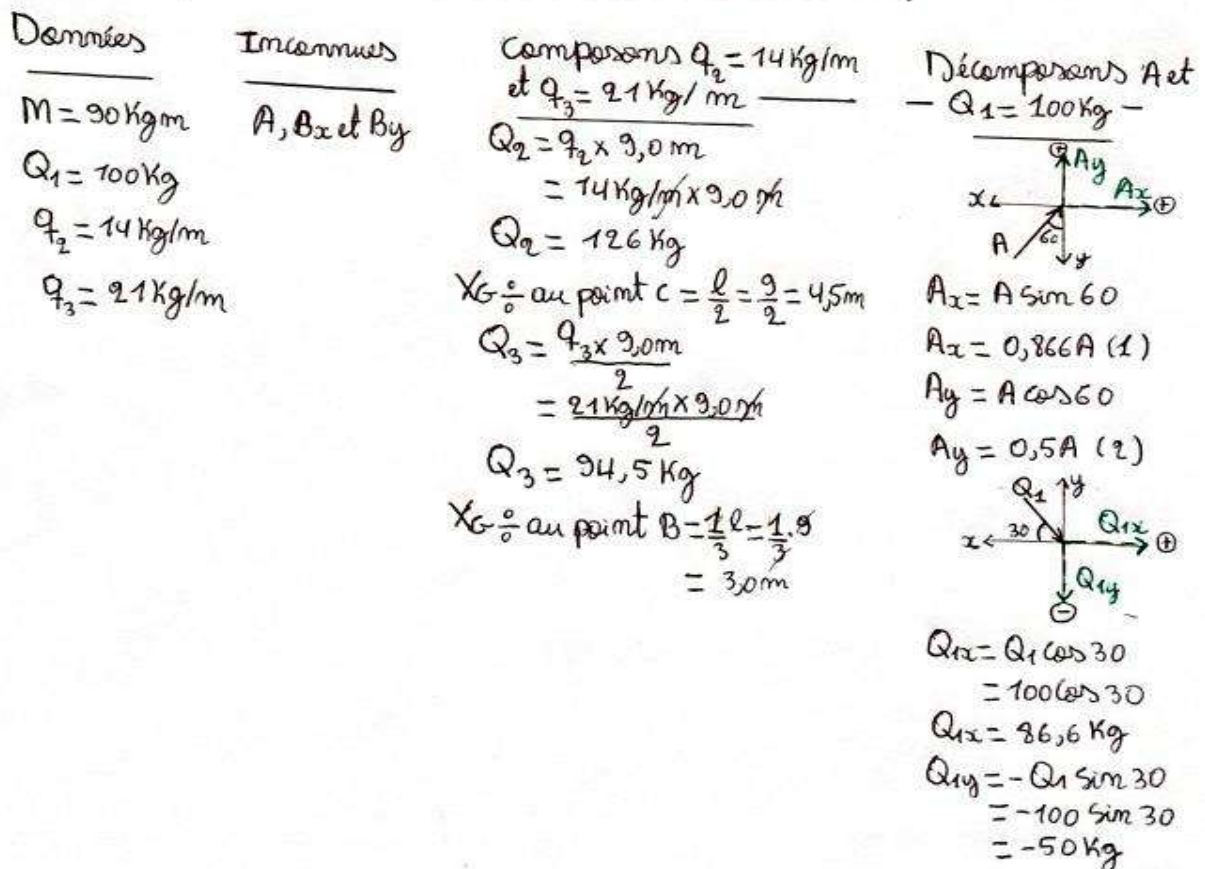 Données
M = 90 Kgm
Q₁ = 100 Kg
q₂ = 14 Kg/m
q₃ = 21 Kg/m
Inconnues
A, Bx et By
Composons q₂ = 14 Kg/m
et q₃ = 21 Kg/m
Q₂ = q₂ x 9,0 m
= 14 Kg/m x 9,0 m
Q₂ = 126 Kg
XG ÷ au point C = l/2 = 9/2 = 4,5m
Q₃ = q₃ x 9,0m / 2
= 21 Kg/m x 9,0 m / 2
Q₃ = 94,5 Kg
XG ÷ au point B = 1/3 l = 1/3 . 9
= 3,0m
Décomposons A et
- Q₁ = 100 Kg -
⊕ Ay
Ax
x ⊕
A 60
y
Ax = A sin 60
Ax = 0,866A (1)
Ay = A cos 60
Ay = 0,5A (2)
Q₁ y
Q₁x
x 30 ⊕
Q₁y
⊖
Q₁x = Q₁ cos 30
= 100 cos 30
Q₁x = 86,6 Kg
Q₁y = -Q₁ sin 30
= -100 sin 30
= -50 Kg